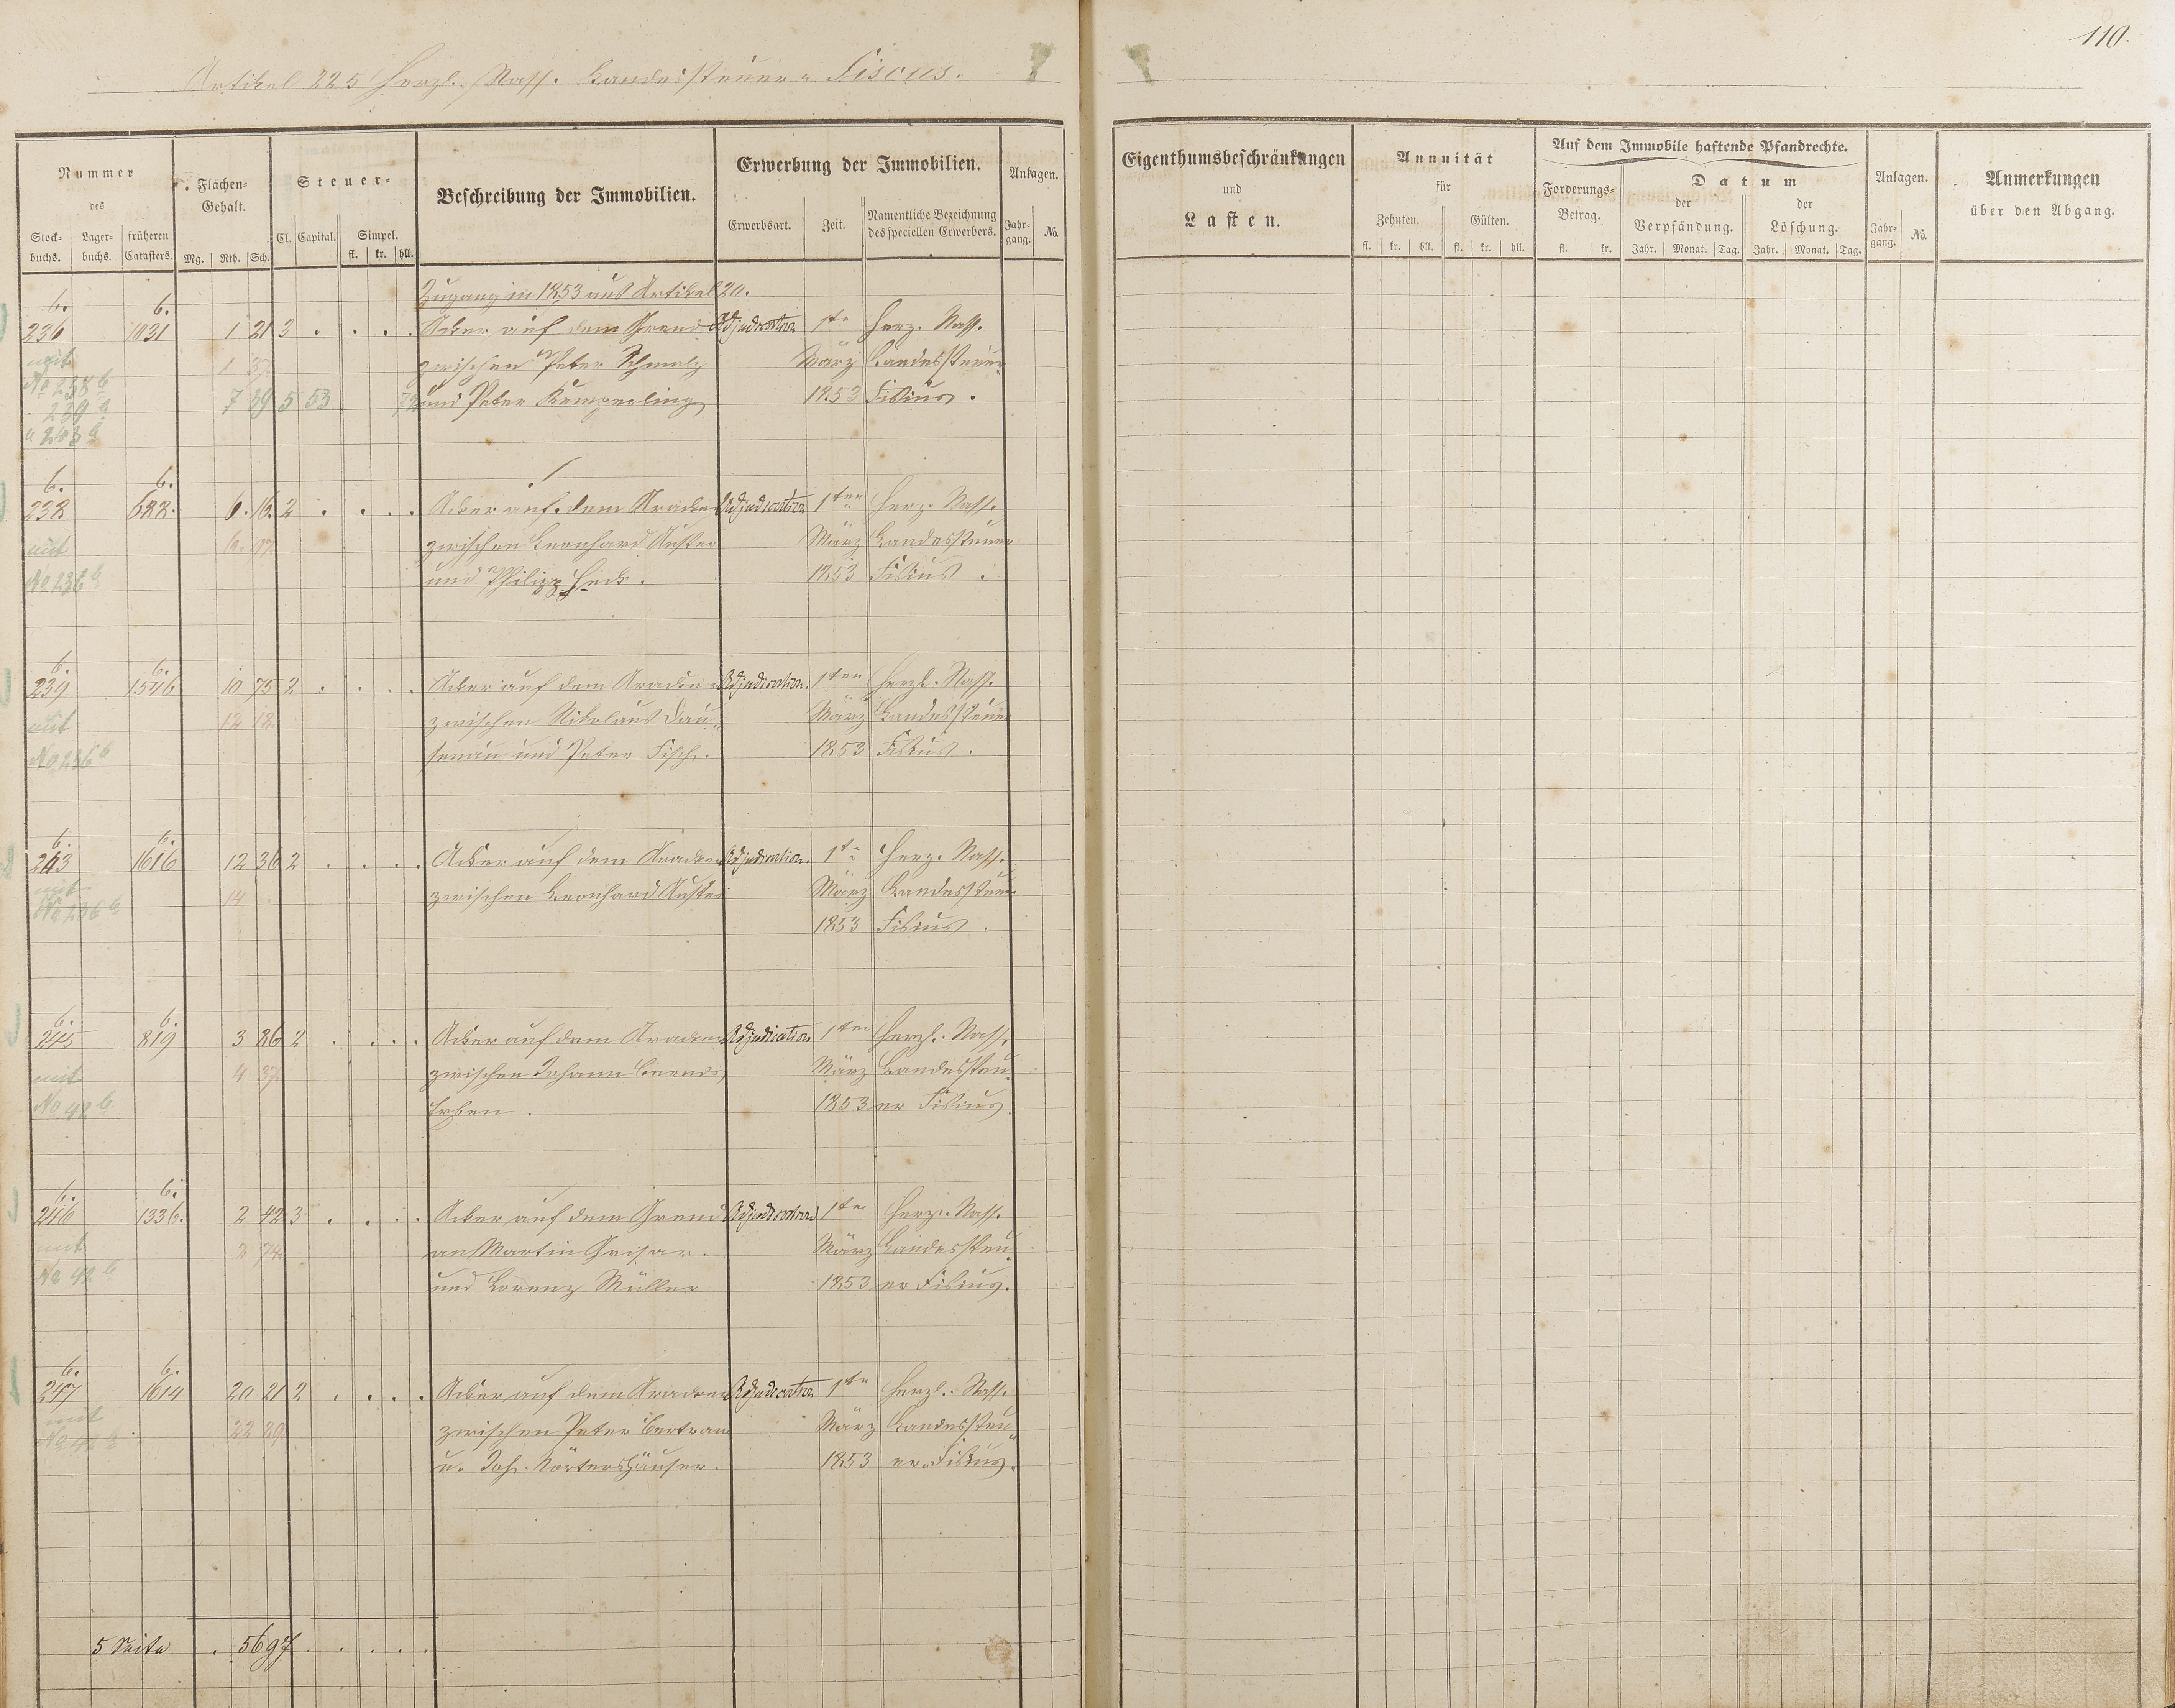 110.
Artikel 225 Herzl. Nass. Landessteuer-Fiscus.
Nummer des
Stockbuchs. Lagerbuchs. früheren Catasters.
Flächen-Gehalt.
Mg. Rth. Sch.
Steuer-
Cl. Capital. Simpel.
fl. kr. hll.
Beschreibung der Immobilien.
Erwerbung der Immobilien.
Erwerbsart. Zeit. Namentliche Bezeichnung des speciellen Erwerbers.
Anlagen.
Jahrgang. No.
Eigenthumsbeschränkungen
und
Lasten.
Annuität
für
Zehnten. Gülten.
fl. kr. hll. fl. kr. hll.
Auf dem Immobile haftende Pfandrechte.
Forderungs-Betrag.
fl. kr.
Datum
der Verpfändung. der Löschung.
Jahr. Monat. Tag. Jahr. Monat. Tag.
Anlagen.
Jahrgang. No.
Anmerkungen
über den Abgang.
Zugang in 1853 aus Artikel 20.
6. 6.
236 1031 1 21 3 . . . . Acker auf dem Grend Adjudication 1te Herz. Nass.
mit 1 37 zwischen Peter Schmalz März Landessteuer
No 238 b
239 b 7 39 5 53 72 und Peter Kemperling 1853 Fiskus.
" 243 b
6. 6.
238 688. 6. 16. 2 . . . Acker auf dem Adjudication 1ten Herz. Nass.
mit 6. 97 zwischen Leonhard Auster März Landessteuer
No 236 b und Philipp Heck. 1853 Fiskus.
6. 6.
239 1546 10 75 2 . . . . Acker auf dem Adjudication. 1ten Herzl. Nass.
mit 12 18 zwischen Nikolaus Dau- März Landessteuer
No 236 b senau und Peter Fisch. 1853 Fiskus.
6. 6.
243 1616 12 36 2 . . . . Acker auf dem Adjudication. 1te Herz. Nass.
mit 14 zwischen Leonhard Auster März Landessteuer
No 236 b 1853 Fiskus.
6. 6.
245 819 3 86 2 . . . . Acker auf dem Adjudication 1ten Herzl. Nass.
mit 4 37 zwischen Johann März Landessteu-
No 42 b Erben. 1853 er Fiskus
6. 6.
246 1336. 2 42 3 . . . . Acker auf dem Grend Adjudication 1ten Herz. Nass.
mit 2 74 an Martin Grisar. März Landessteu-
No 42 b und Lorenz Müller 1853 er Fiskus.
6. 6.
247 1614 20 21 2 . . . . Acker auf dem Adjudication 1te Herzl. Nass.
mit 22 89 zwischen Peter Bertram März Landessteu-
No 42 b u. Joh. Körtershäuser. 1853 er Fiskus.
5 Seite . 56 97 . . . .